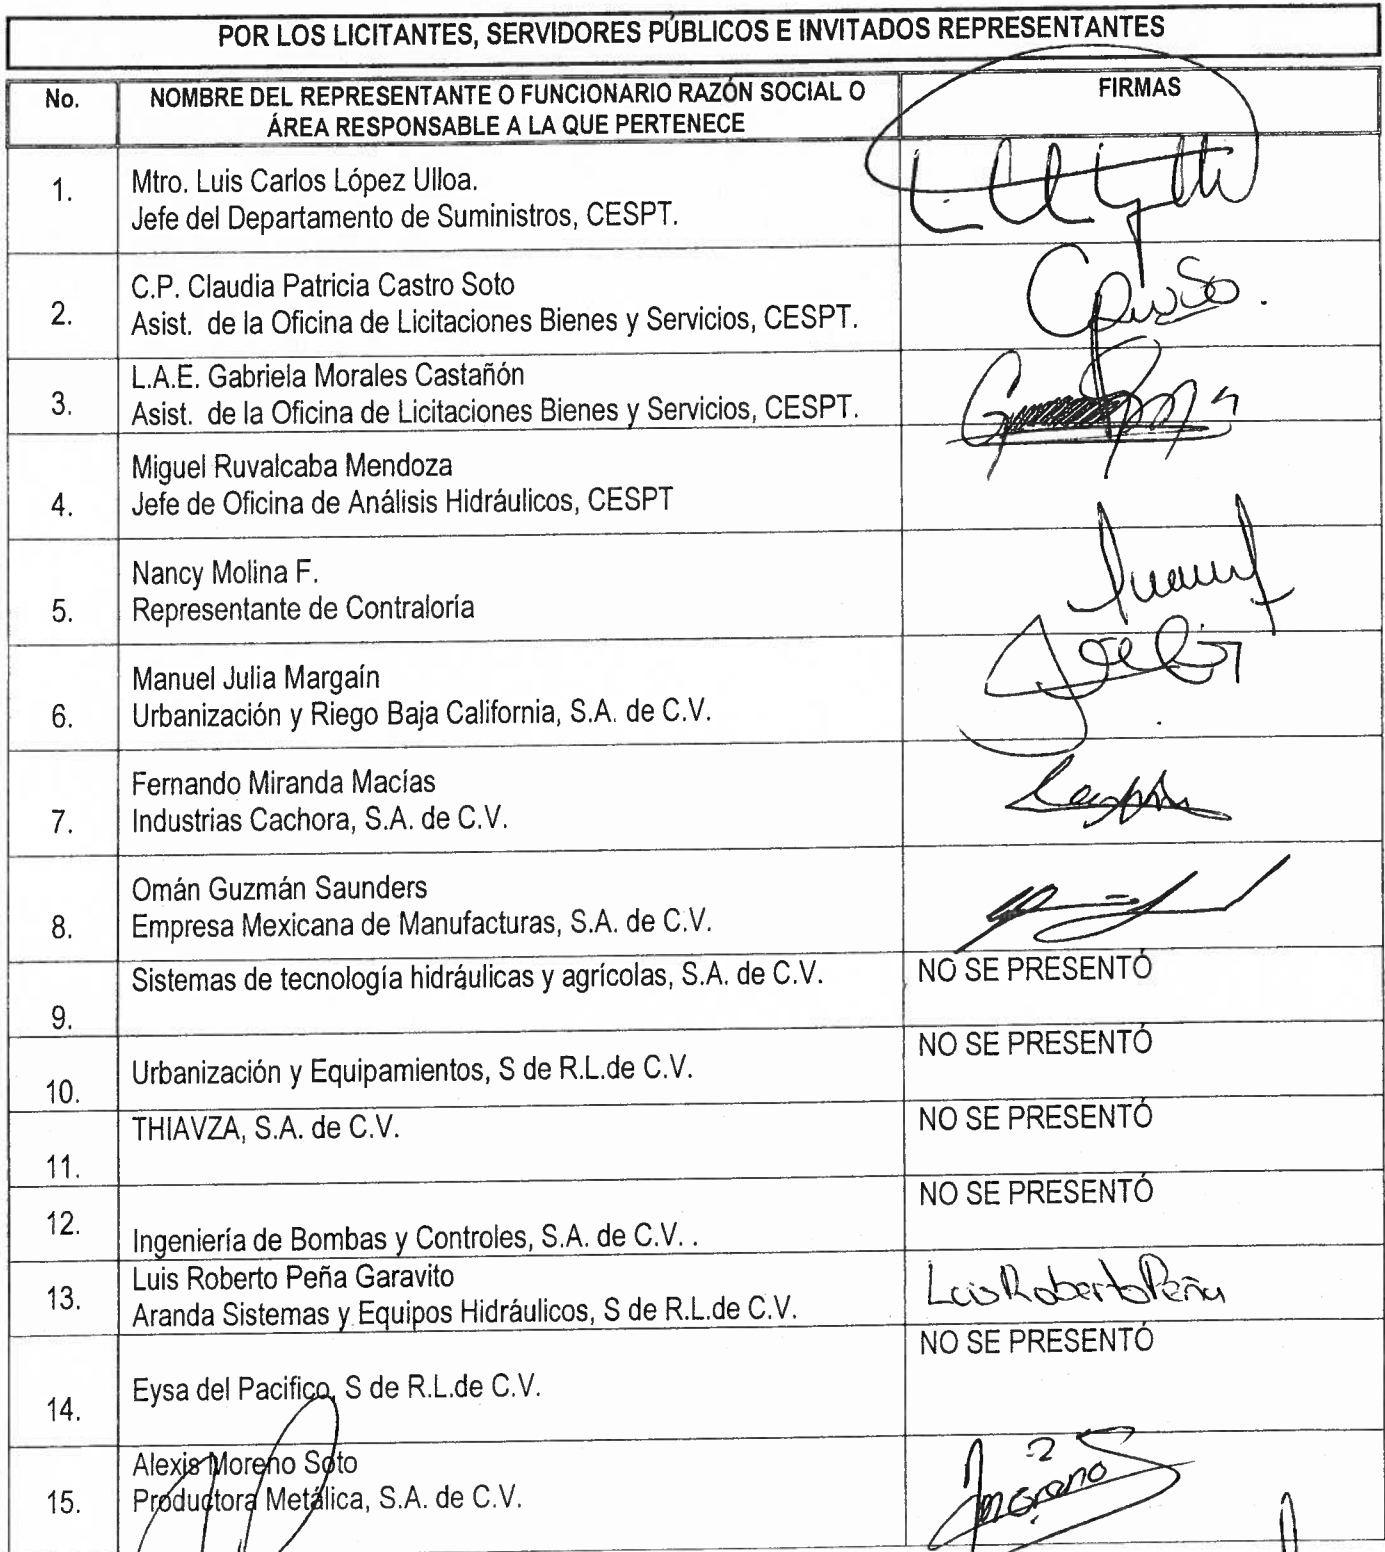 POR LOS LICITANTES, SERVIDORES PÚBLICOS E INVITADOS REPRESENTANTES
No. NOMBRE DEL REPRESENTANTE O FUNCIONARIO RAZÓN SOCIAL O ÁREA RESPONSABLE A LA QUE PERTENECE FIRMAS
1. Mtro. Luis Carlos López Ulloa.
Jefe del Departamento de Suministros, CESPT.
2. C.P. Claudia Patricia Castro Soto
Asist. de la Oficina de Licitaciones Bienes y Servicios, CESPT.
3. L.A.E. Gabriela Morales Castañón
Asist. de la Oficina de Licitaciones Bienes y Servicios, CESPT.
4. Miguel Ruvalcaba Mendoza
Jefe de Oficina de Análisis Hidráulicos, CESPT
5. Nancy Molina F.
Representante de Contraloría
6. Manuel Julia Margaín
Urbanización y Riego Baja California, S.A. de C.V.
7. Fernando Miranda Macías
Industrias Cachora, S.A. de C.V.
8. Omán Guzmán Saunders
Empresa Mexicana de Manufacturas, S.A. de C.V.
9. Sistemas de tecnología hidráulicas y agrícolas, S.A. de C.V. NO SE PRESENTÓ
10. Urbanización y Equipamientos, S de R.L.de C.V. NO SE PRESENTÓ
11. THIAVZA, S.A. de C.V. NO SE PRESENTÓ
12. Ingeniería de Bombas y Controles, S.A. de C.V. . NO SE PRESENTÓ
13. Luis Roberto Peña Garavito
Aranda Sistemas y Equipos Hidráulicos, S de R.L.de C.V. Luis Roberto Peña
14. Eysa del Pacifico, S de R.L.de C.V. NO SE PRESENTÓ
15. Alexis Moreno Soto
Productora Metálica, S.A. de C.V. Moreno S